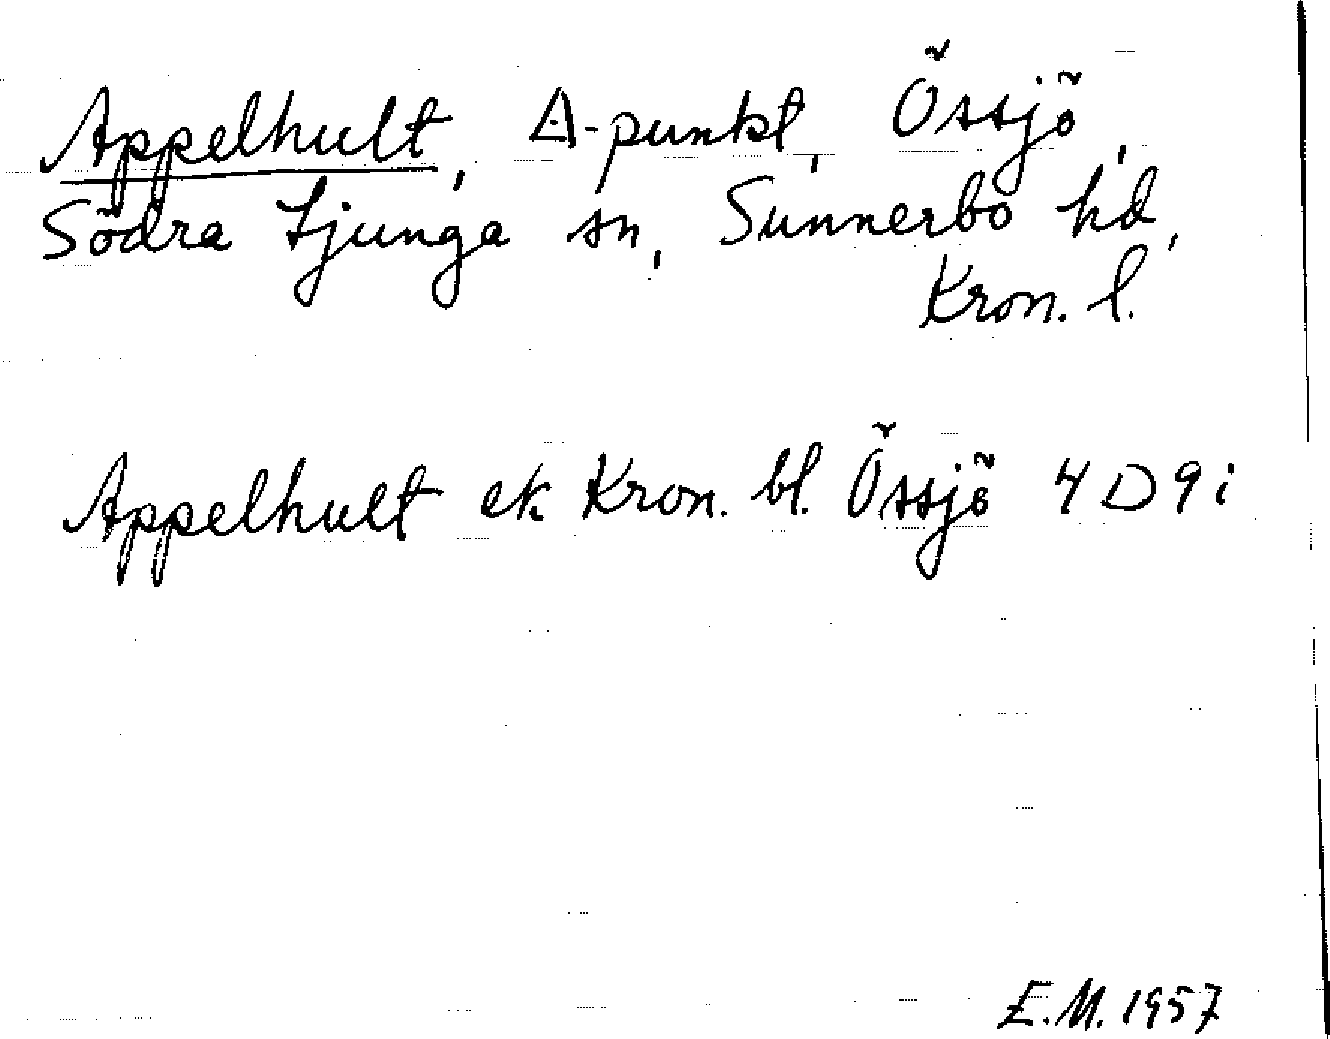 Appelhult, ∆-punkt, Össjö,
Södra Ljunga sn, Sunnerbo hd,
Kron. l.
Appelhult ek Kron. bl. Össjö 4D9i
E.M. 1957